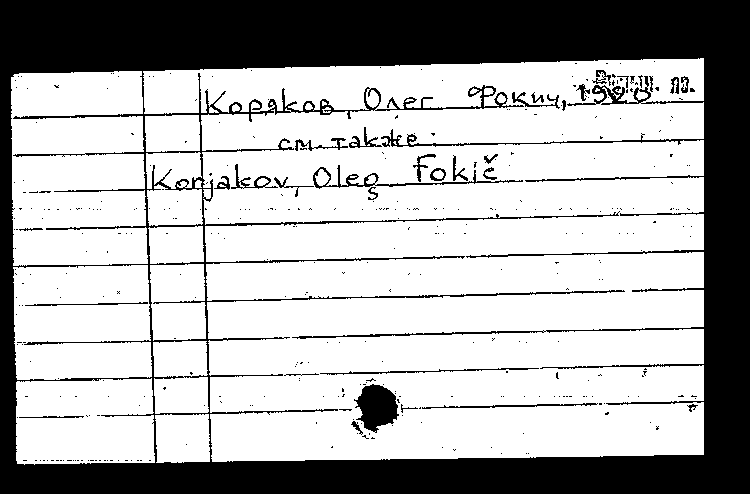 Коряков, Олег Фокич, 1920
см. также:
Korjakov, Oleg Fokič